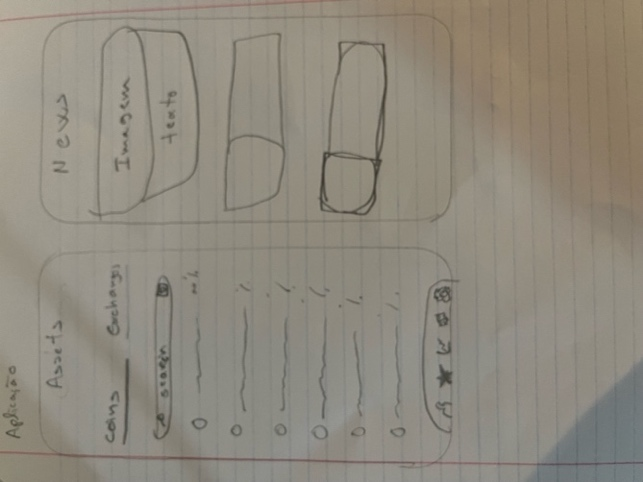 Aplicação
Assets
Coins Exchanges
search
%
%
%
%
%
%
News
Imagem
texto